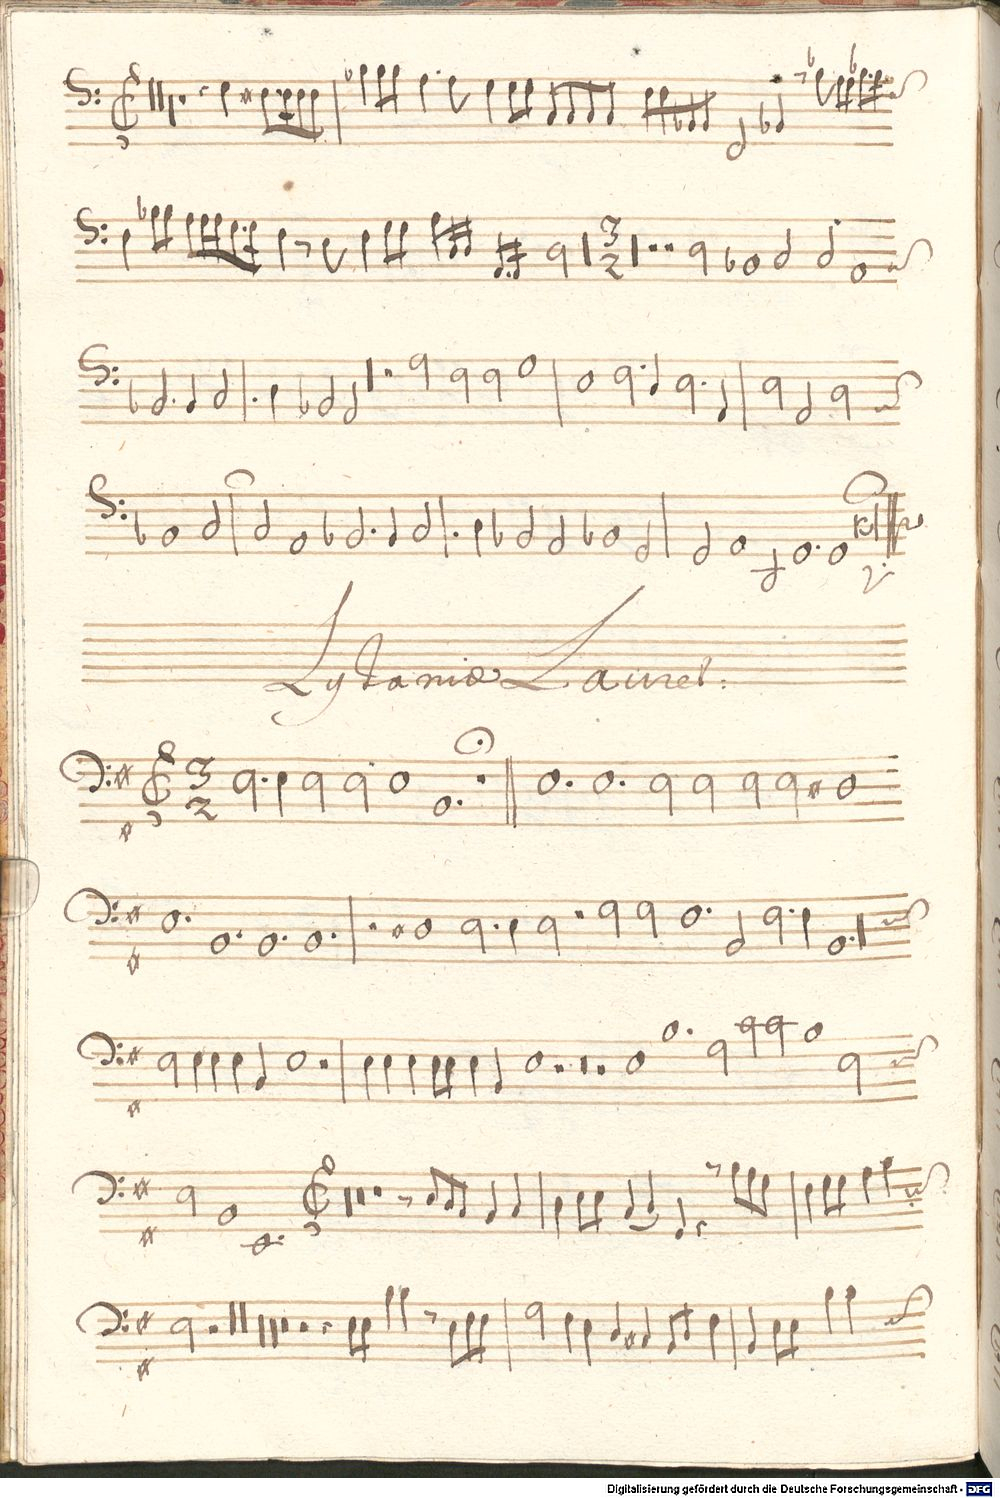 3
2
Lytaniæ Lauret:
3
2
Digitalisierung gefördert durch die Deutsche Forschungsgemeinschaft - DFG